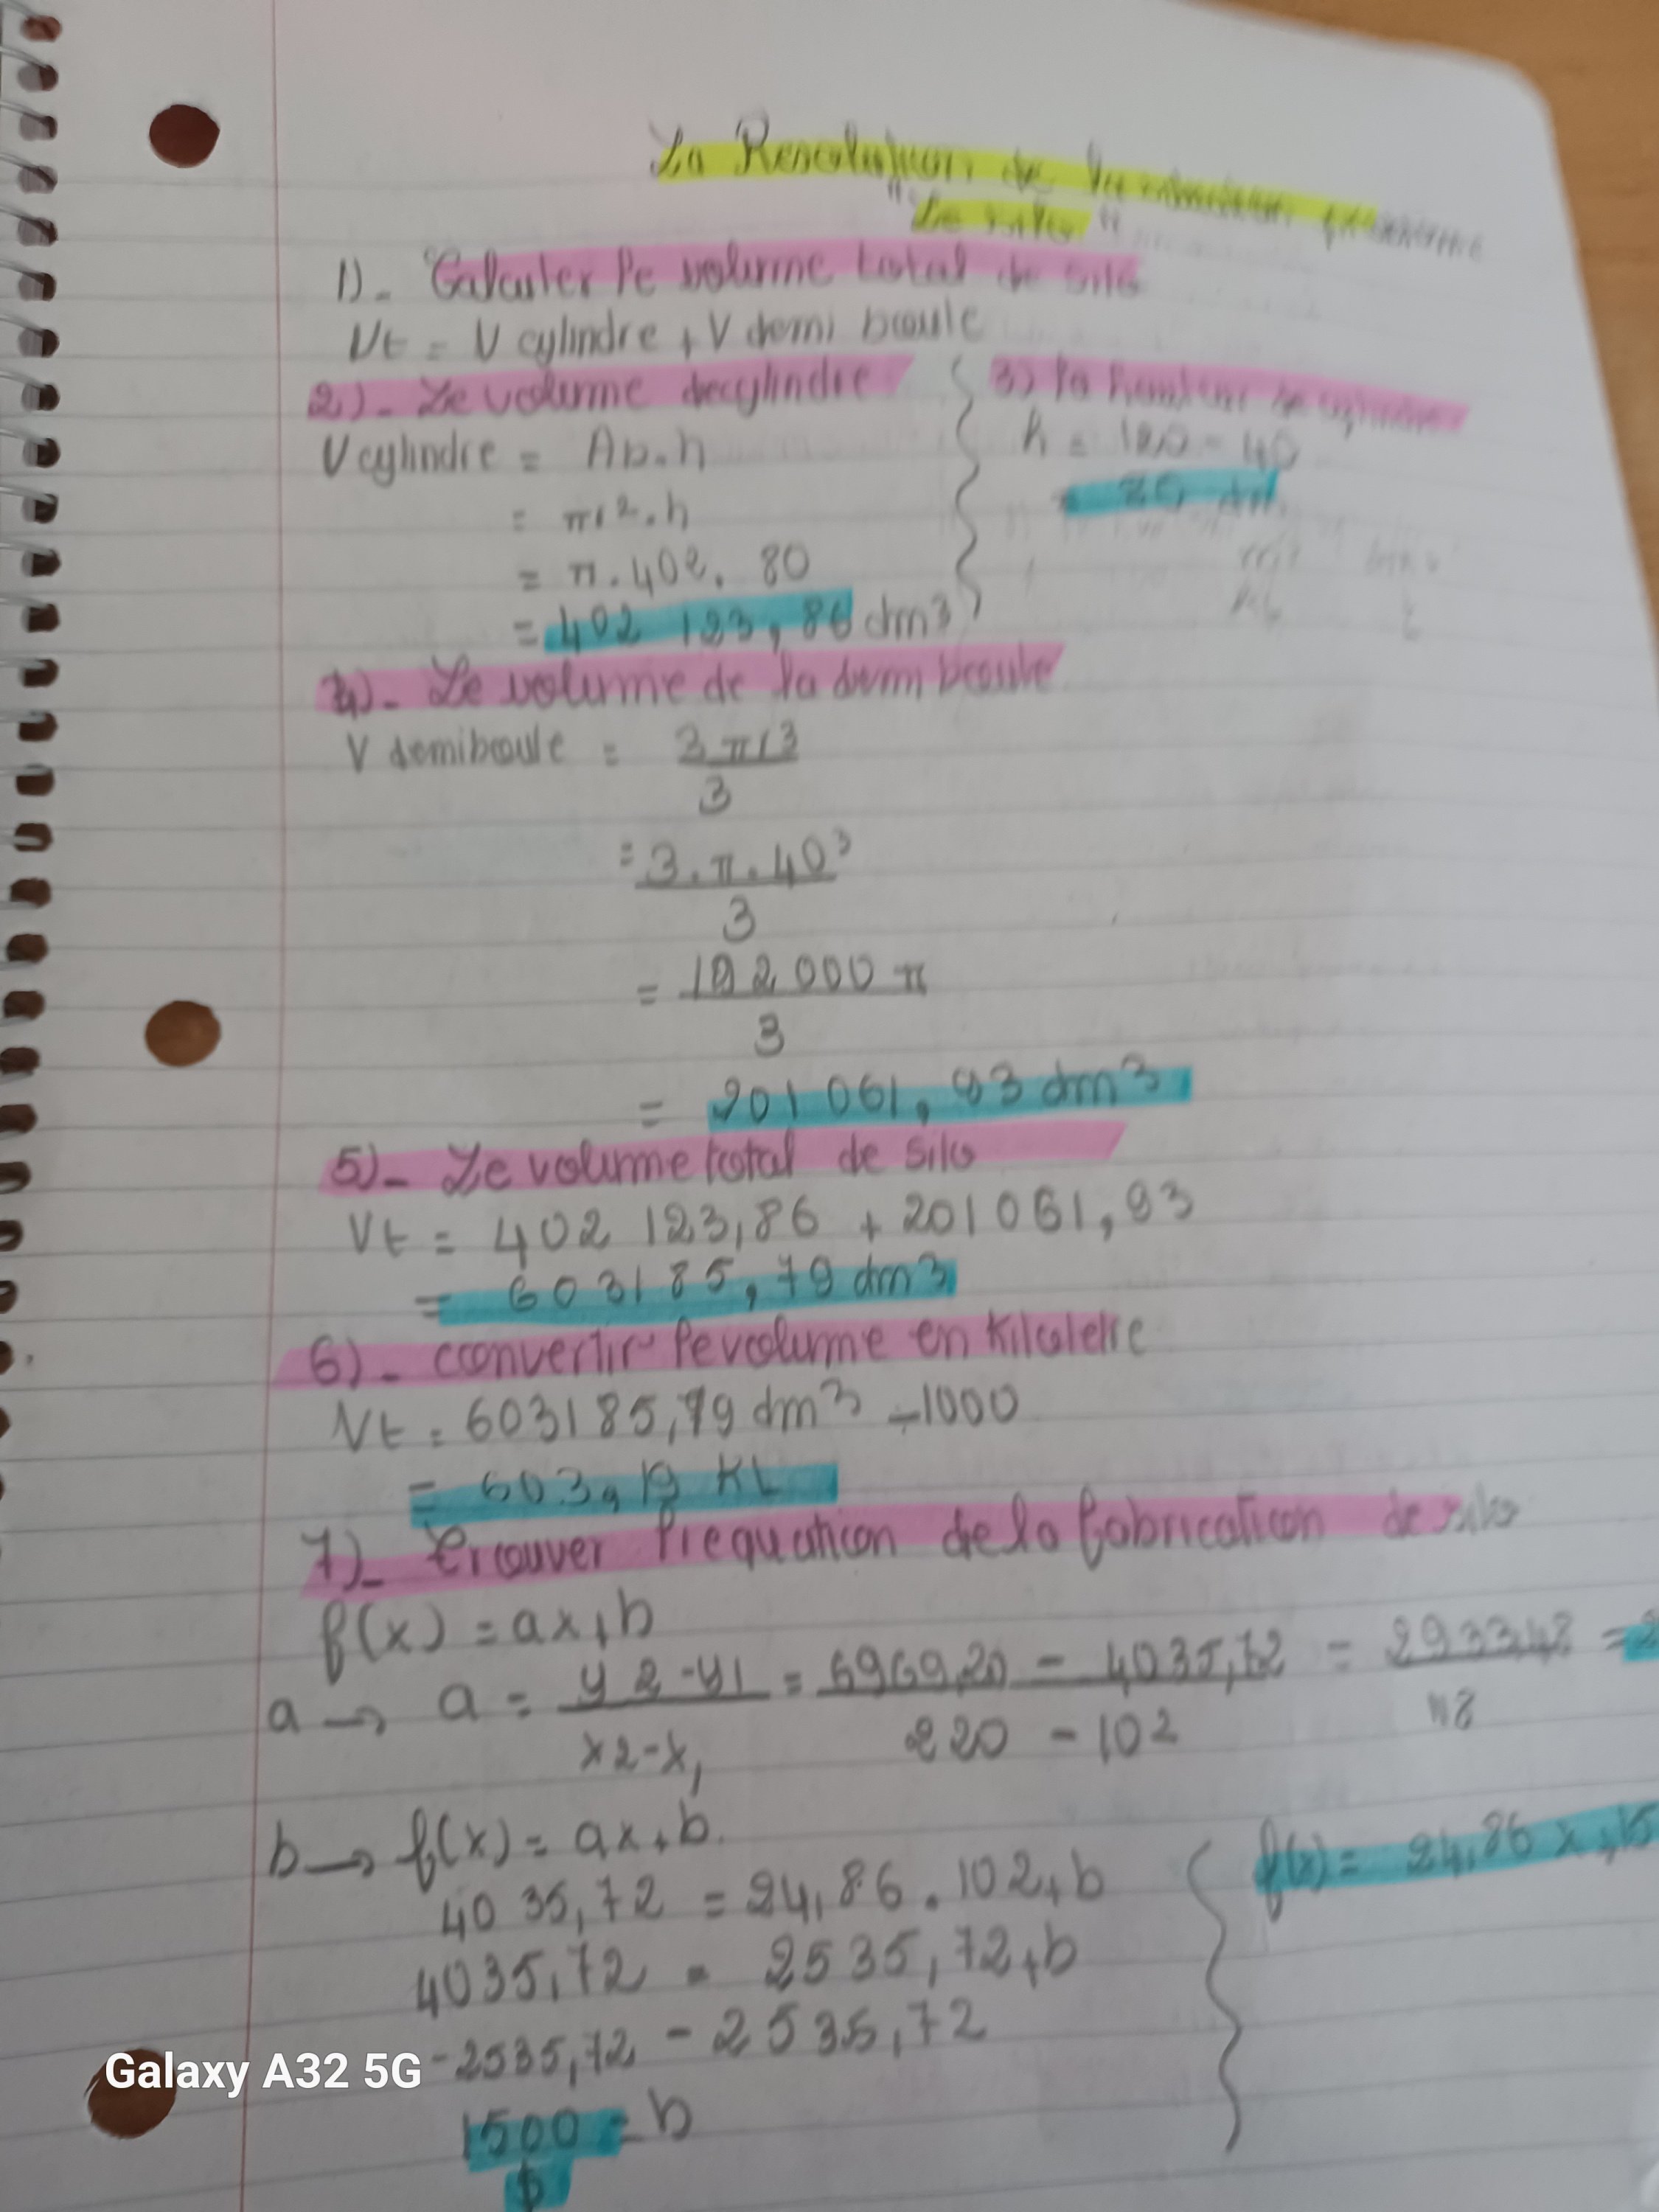 La Resolution de la
"Le silo"
1)- Calculer le volume total de silo
Vt = V cylindre + V demi boule
2)- Le volume de cylindre
V cylindre = Ab.h
= πr².h
= π.402. 80
= 402 123,86 dm3
3) la hauteur de cylindre
h = 120 - 40
= 80 dm
4)- Le volume de la demi boule
V demiboule = 3πr3
3
= 3.π.40³
3
= 192 000 π
3
= 201 061,93 dm3
5)- Le volume total de silo
Vt = 402 123,86 + 201 061,93
= 603185,79 dm3
6)- convertir le volume en kilolitre
Vt = 603185,79 dm3 ÷1000
= 603,19 KL
7)- trouver l'equation de la fabrication de silo
f(x) = ax+b
a → a = y2-y1 = 6969,20 - 4035,72 = 2933,48 =
x2-x1 220 - 102 118
b → f(x) = ax+b.
4035,72 = 24,86 . 102+b
4035,72 = 2535,72+b
-2535,72 - 2535,72
1500 = b
$
f(x) = 24,86 x +15
Galaxy A32 5G